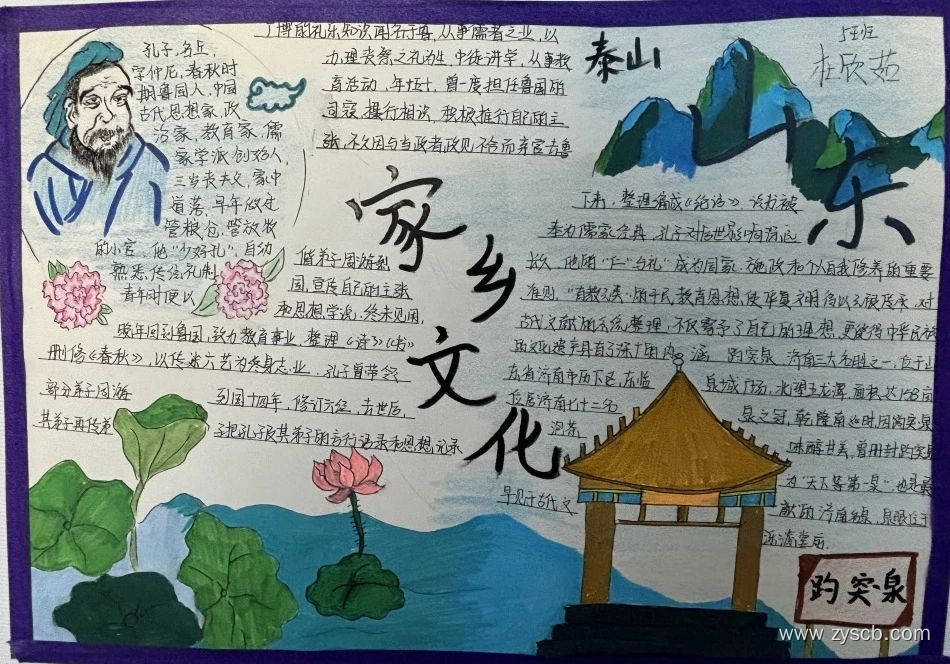 家乡文化
山东
泰山
5班
杜欣茹
孔子,名丘,
字仲尼,春秋时
期鲁国人,中国
古代思想家,政
治家,教育家,儒
家学派创始人,
三岁丧夫父,家中
道落,早年做过
管粮仓,管放牧
的小官,他"少好礼",自幼
熟悉传统礼制
青年时便以
了博的礼乐知识闻名于鲁,从事儒者之业,以
办理丧祭之礼为生,中徒讲学,从事教
育活动,年五十,曾一度担任鲁国的
司寇,摄行相议,积极推行自己的主
张,不久因与当政者政见不合而弃官去鲁
偕弟子周游列
国,宣度自己的主张
和思想学说,终未见用,
晚年回到鲁国,致力教育事业,整理《诗》《书》
删修《春秋》,以传述六艺为终身志业,孔子曾带领
部分弟子周游
列国十四年,修订六经,去世后,
其弟子再传弟
子把孔子及其弟子的言行语录和思想记录
下来,整理编成《论语》该书被
奉为儒家经典,孔子对后世影响深远
长久,他的"仁""礼"成为国家,施政和个人自我修养的重要
准则,"有教无类"的平民教育思想,使华夏文明得以
古代文献的系统整理,不仅寄予了自己的理想,更使得中华民族
的文化遗产具有了深广的内涵
趵突泉,济南三大名胜之一,位于山
东省济南市历下区,东临
泉城广场,北望五龙潭,面积达158亩
位居济南七十二名
泉之冠,乾隆南巡时因趵突泉
泡茶
味醇甘美,曾册封趵突泉
为"天下第一泉"也是最
早见于古代文
献的济南名泉,
泺源堂后.
趵突泉
www.zyscb.com